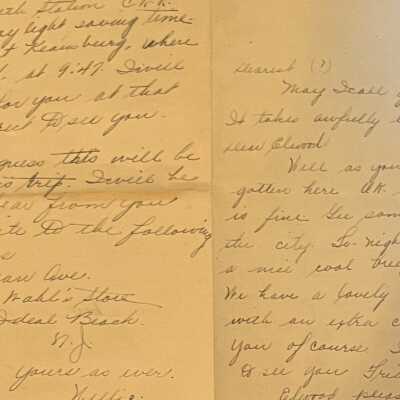 Station
day light saving time
Keansburg, where
at 9:47. I will
for you at that
to see you.
guess this will be
trip. I will be
hear from you
to the following
Ave.
Wahl's Store
Ideal Beach.
N. J.
Yours as ever.
Dearest (?)
May I call
It takes awfully
dear Elwood
Well as you
gotten here O.K.
is fine. Gee some
the city. To-night
a nice cool
We have a lovely
with an extra
you of course. I
to see you
Elwood please